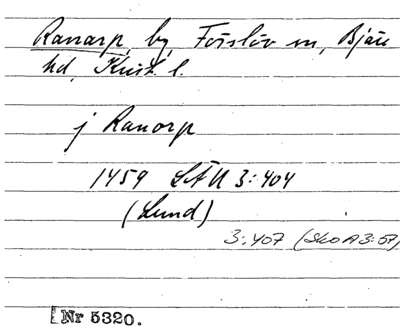 Ranarp, by, Förslöv sn, Bjäre
hd, Krist. l.
j Ranorp
1459 LÄU 3:404
(Lund)
3:407 (SkoA3:57)
[Nr 5320.